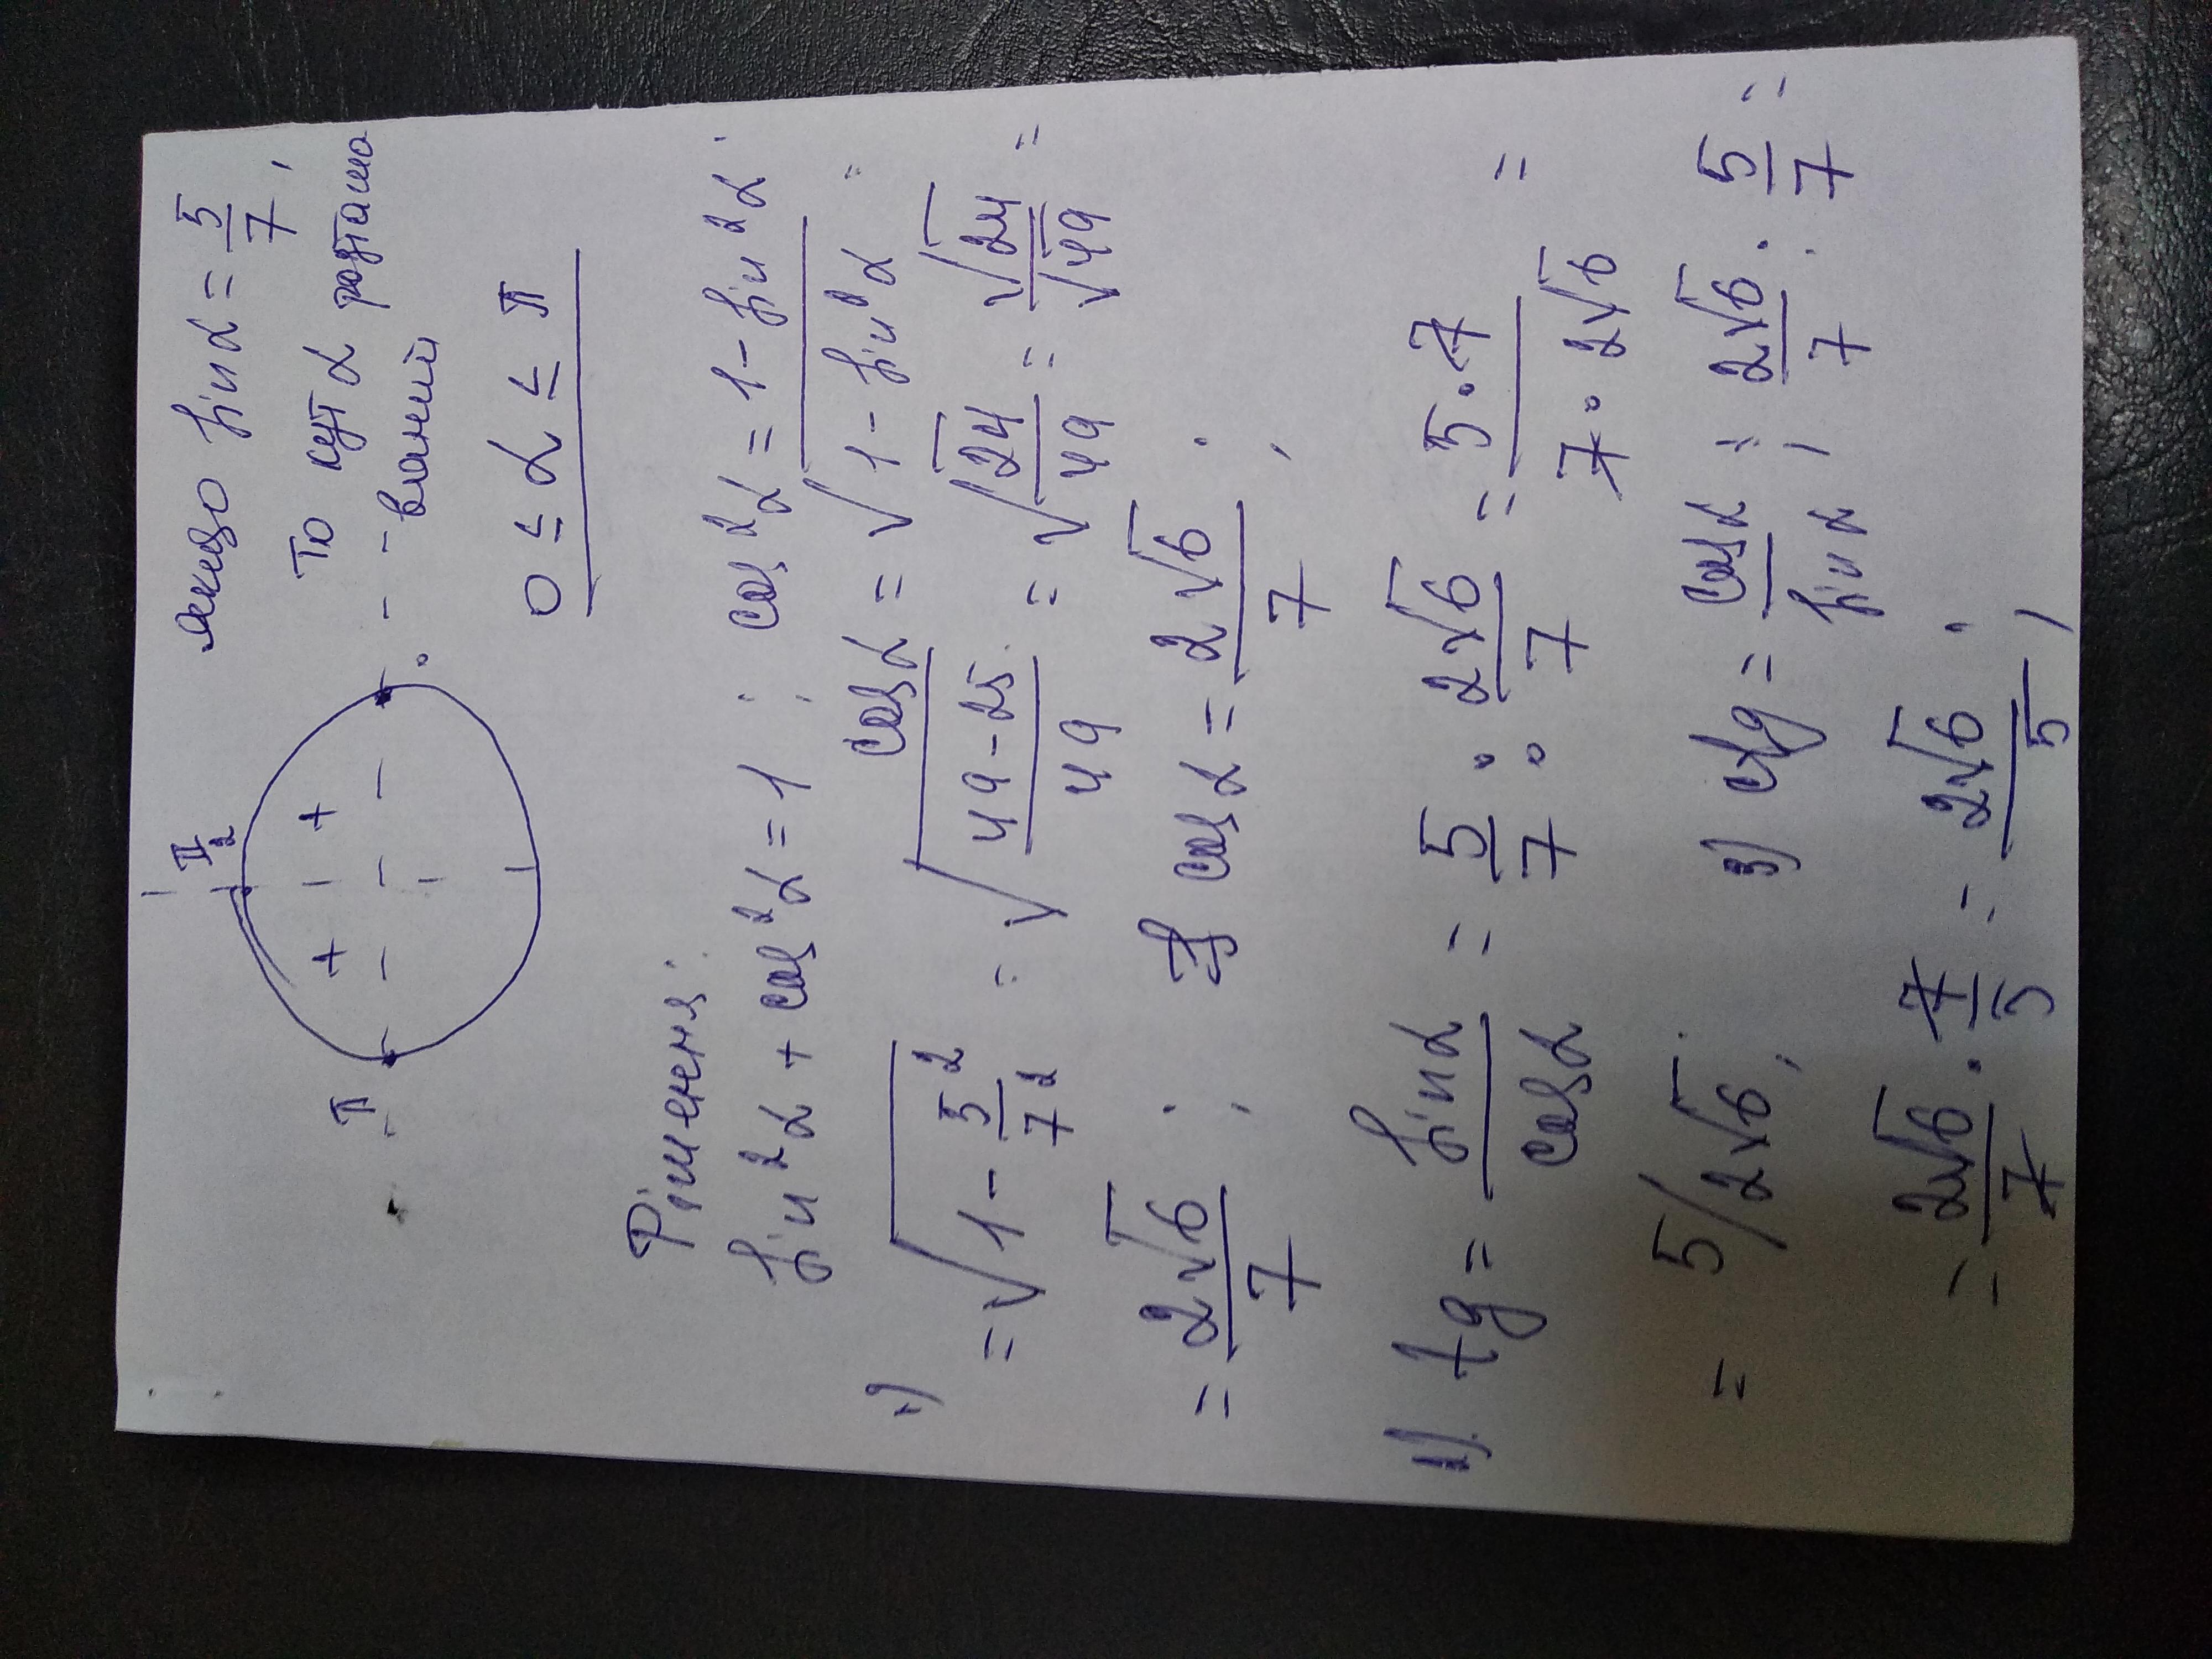 π/2
+ +
π
якщо sinα = 5/7,
то кут α розташо
ваний
0 ≤ α ≤ π
Рішення:
sin²α + cos²α = 1; cos²α = 1 - sin²α;
1) cosα = √(1 - sin²α) =
= √(1 - 5²/7²) = √((49 - 25)/49) = √(24/49) = √24/√49 =
= 2√6/7; cosα = 2√6/7;
2) tg = sinα/cosα = 5/7 : 2√6/7 = 5·7/7·2√6 =
= 5/2√6; 3) ctg = cosα/sinα; = 2√6/7 : 5/7 =
= 2√6/7 · 7/5 = 2√6/5;